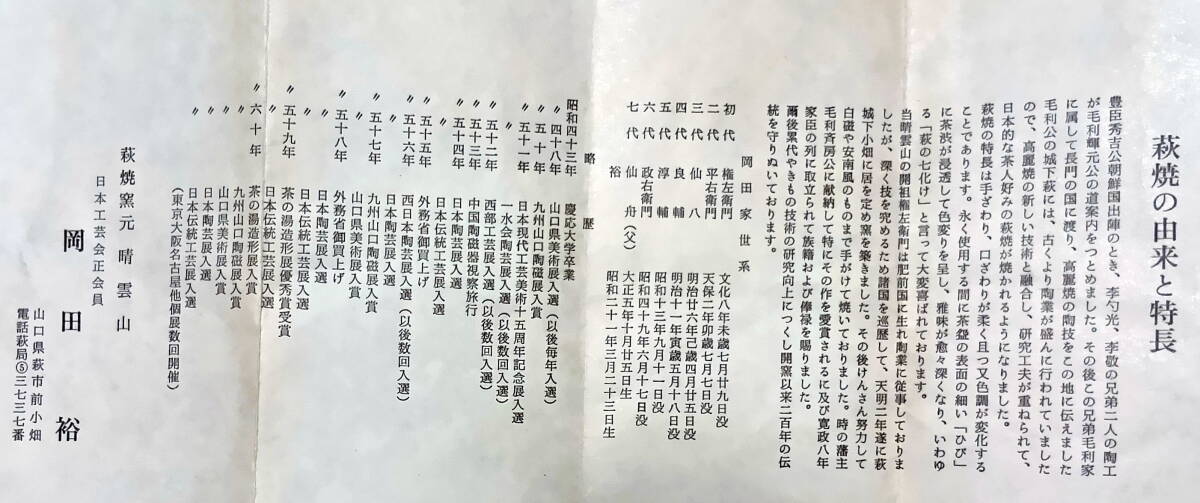 萩焼の由来と特長
豊臣秀吉公朝鮮国出陣のとき、李勺光、李敬の兄弟二人の陶工
が毛利輝元公の道案内をつとめました。その後この兄弟毛利家
に属して長門の国に渡り、高麗焼の陶技をこの地に伝えました
毛利公の城下萩には、古くより陶業が盛んに行われていました
ので、高麗焼の新しい技術と融合し、研究工夫が重ねられて、
日本的な茶人好みの萩焼が焼かれるようになりました。
萩焼の特長は手ざわり、口ざわりが柔く且つ又色調が変化する
ことであります。永く使用する間に茶盌の表面の細い「ひび」
に茶渋が浸透して色変りを呈し、雅味が愈々深くなり、いわゆ
る「萩の七化け」と言って大変喜ばれております。
当晴雲山の開祖権左衛門は肥前国に生れ陶業に従事しておりま
したが、深く技を究めるため諸国を巡歴して、天明二年遂に萩
城下小畑に居を定め窯を築きました。その後けんさん努力して
白磁や安南風のものまで手がけて焼いておりました。時の藩主
毛利斉房公に献納して特にその作を愛賞されるに及び寛政八年
家臣の列に取立られて族籍および俸禄を賜りました。
爾後累代やきもの技術の研究向上につくし開窯以来二百年の伝
統を守りぬいております。
岡田家世系
初代 権左衛門 文化八年未歳七月廿九日没
二代 平右衛門 天保二年卯歳七月七日没
三代 仙八 明治廿六年己歳四月廿五日没
四代 良輔 明治十一年寅歳五月十八日没
五代 淳輔 昭和十三年九月十一日没
六代 政右衛門 昭和四十九年六月十七日没
七代 仙舟(父) 大正五年十月廿五日生
裕 昭和二十一年三月二十三日生
略歴
昭和四十三年 慶応大学卒業
〃四十八年 山口県美術展入選(以後毎年入選)
〃五十年 九州山口陶磁展入賞
〃五十一年 日本現代工芸美術十五周年記念展入選
〃 一水会陶芸展入選(以後数回入選)
〃五十二年 西部工芸展入選(以後数回入選)
〃五十三年 中国陶磁器視察旅行
〃五十四年 日本陶芸展入選
〃 日本伝統工芸展入選
〃五十五年 外務省御買上げ
〃五十六年 西日本陶芸展入選(以後数回入選)
〃 日本陶芸展入選
〃五十七年 九州山口陶磁展入賞
〃 山口県美術展入賞
〃五十八年 外務省御買上げ
〃 日本陶芸展入選
〃 日本伝統工芸展入選
〃五十九年 茶の湯造形展優秀賞受賞
〃 日本伝統工芸展入選
〃六十年 茶の湯造形展入賞
〃 九州山口陶磁展入賞
〃 山口県美術展入賞
〃 日本陶芸展入選
〃 日本伝統工芸展入選
(東京大阪名古屋他個展数回開催)
萩焼窯元 晴雲山
日本工芸会正会員
岡田裕
山口県萩市前小畑
電話萩局⑤三七三七番